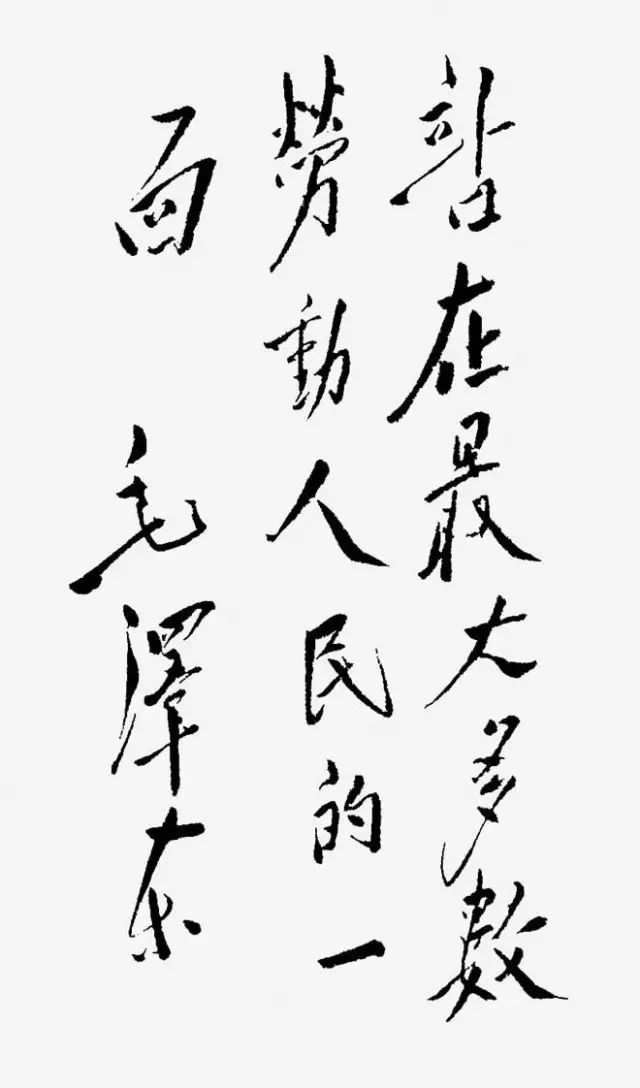 站在最大多數
勞動人民的一
面 毛澤東